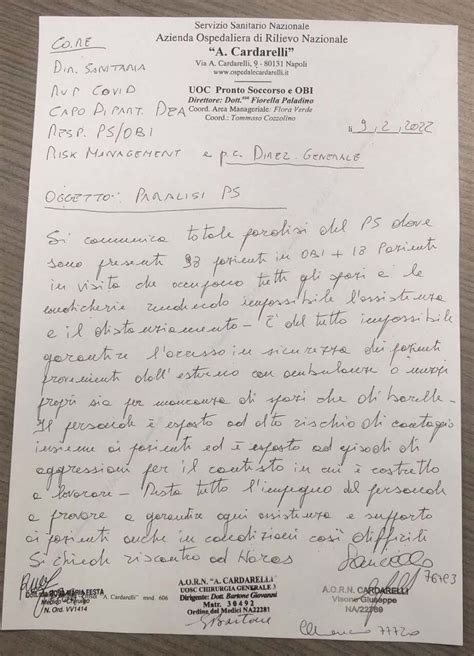 Servizio Sanitario Nazionale
Azienda Ospedaliera di Rilievo Nazionale
"A. Cardarelli"
Via A. Cardarelli, 9 - 80131 Napoli
www.ospedalecardarelli.it
UOC Pronto Soccorso e OBI
Direttore: Dott.ssa Fiorella Paladino
Coord. Area Manageriale: Flora Verde
Coord.: Tommaso Cozzolino
CO.RE
DIR. SANITARIA
RUP COVID
CAPO DIPART. DEA
RESP. PS/OBI
lì 9, 2, 2022
RISK MANAGEMENT e p.c. DIREZ. GENERALE
OGGETTO: PARALISI PS
Si comunica totale paralisi del PS dove
sono presenti 93 pazienti in OBI + 18 Pazienti
in visita che occupano tutti gli spazi e le
medicherie rendendo impossibile l'assistenza
e il distanziamento - È del tutto impossibile
garantire l'accesso in sicurezza dei pazienti
provenienti dall'esterno con ambulanze o mezzi
propri sia per mancanza di spazi che di barelle -
Il personale è esposto ad alto rischio di contagio
insieme ai pazienti ed è esposto ad episodi di
aggressioni per il contesto in cui è costretto
a lavorare - Resta tutto l'impegno del personale
a provare a garantire ogni assistenza e supporto
ai pazienti anche in condizioni così difficili
Si chiede riscontro ad Horas
76793
ROSAMARIA FESTA
"A. Cardarelli" mnd. 606
N. Ord. VV1414
A.O.R.N. "A. CARDARELLI"
UOSC CHIRURGIA GENERALE 3
Dirigente: Dott. Bartone Giovanni
Matr. 30492
Ordine dei Medici NA22281
A.O.R.N. CARDARELLI
Visone Giuseppe
NA/22789
77720